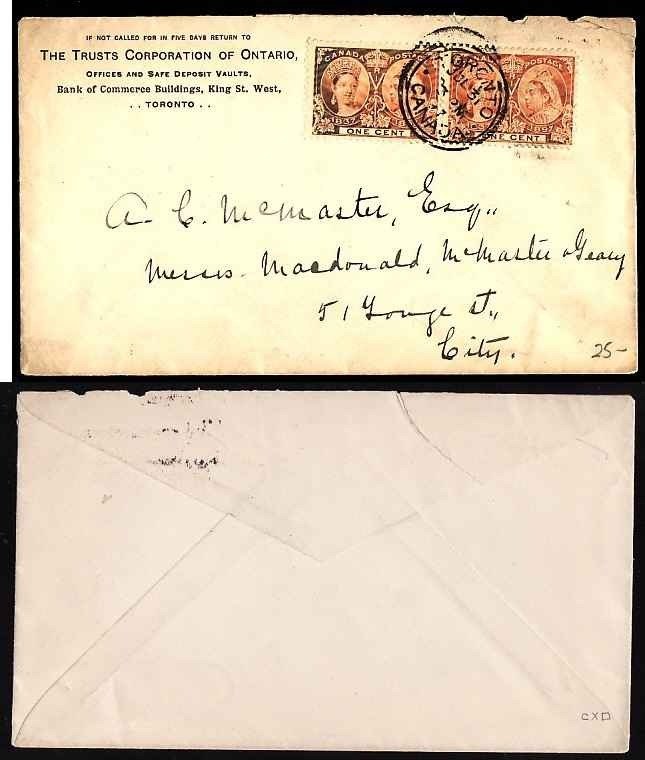 IF NOT CALLED FOR IN FIVE DAYS RETURN TO
THE TRUSTS CORPORATION OF ONTARIO,
OFFICES AND SAFE DEPOSIT VAULTS,
Bank of Commerce Buildings, King St. West,
. . TORONTO . .
CANADA POSTAGE
1837 1897
ONE CENT
POSTAGE
1897
ONE CENT
TORONTO
CANADA
A. C. McMaster, Esq.,
Messrs. Macdonald, McMaster & Geary
51 Yonge St.,
City.
25-
CXD